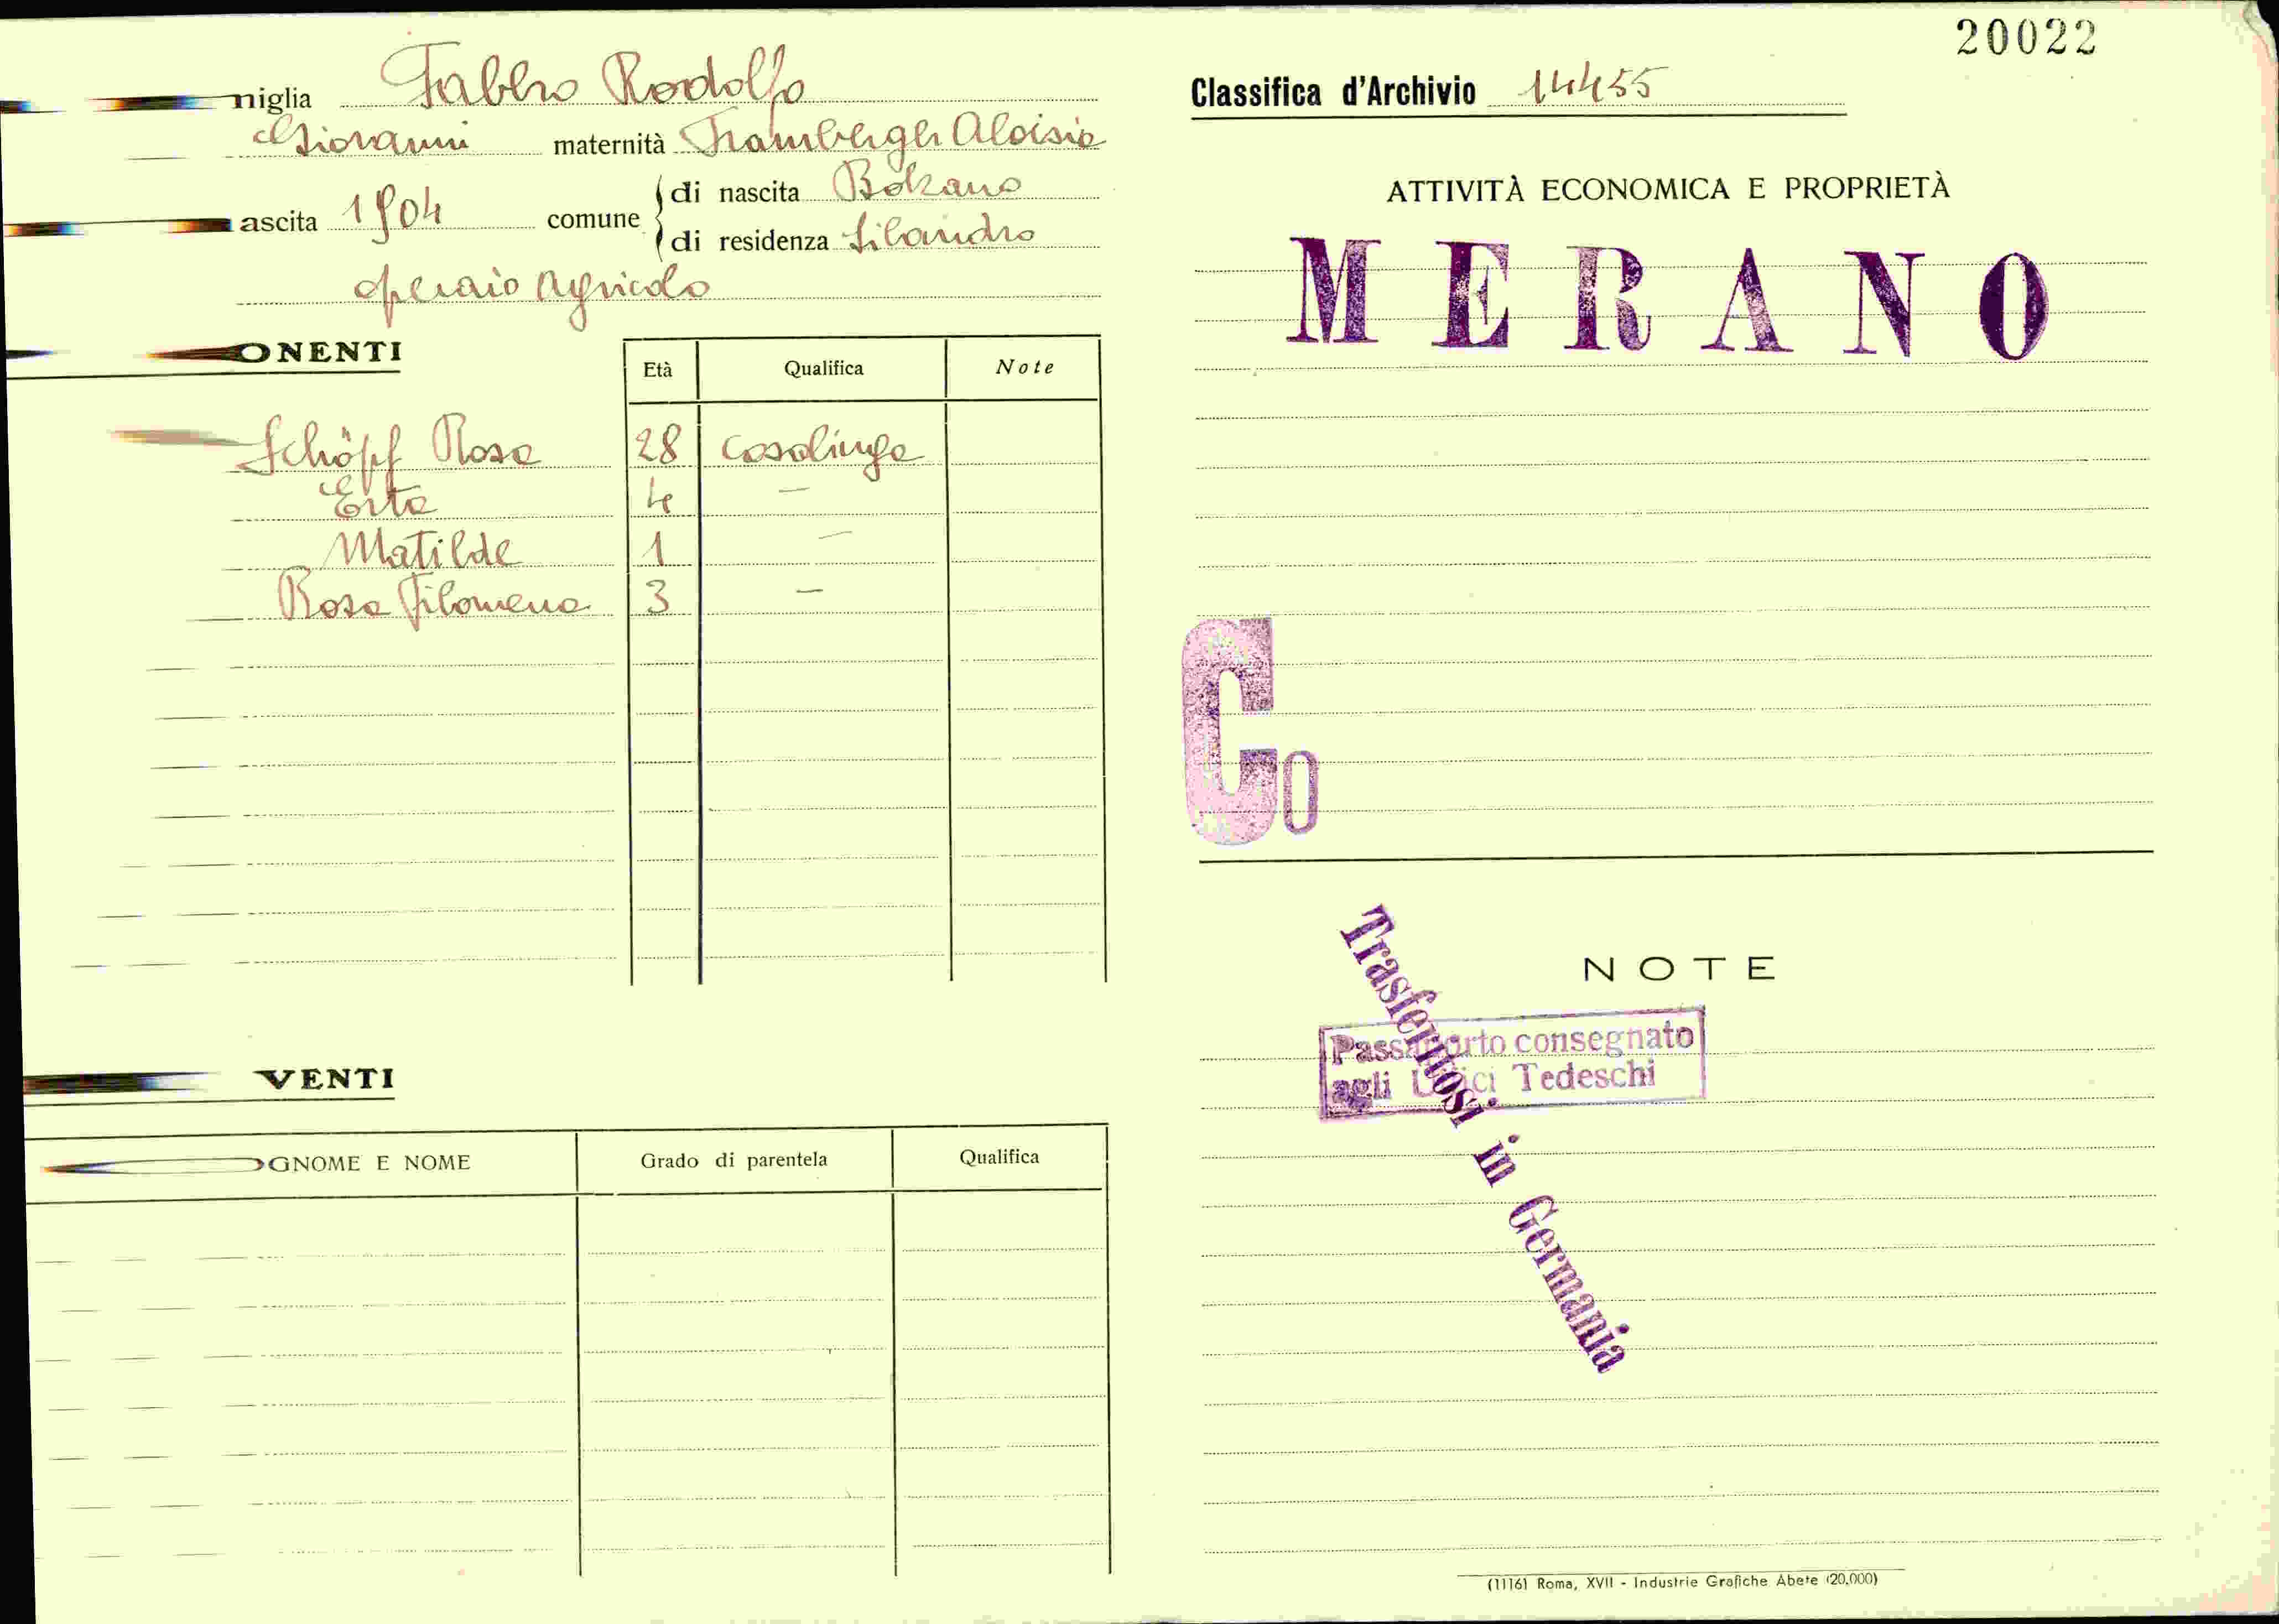 20022
niglia Fabbro Rodolfo
Giovanni maternità Aloisia
ascita 1904 comune di nascita Bolzano
di residenza Silandro
operaio agricolo
ONENTI
Età Qualifica Note
Schöpf Rosa 28 casalinga
Erta 4 —
Matilde 1 —
Rosa Filomena 3 —
VENTI
OGNOME E NOME Grado di parentela Qualifica
Classifica d'Archivio 14455
ATTIVITÀ ECONOMICA E PROPRIETÀ
MERANO
Co
NOTE
Passaporto consegnato
agli Uffici Tedeschi
Trasferitosi in Germania
(11161 Roma, XVII - Industrie Grafiche Abete (20,000)